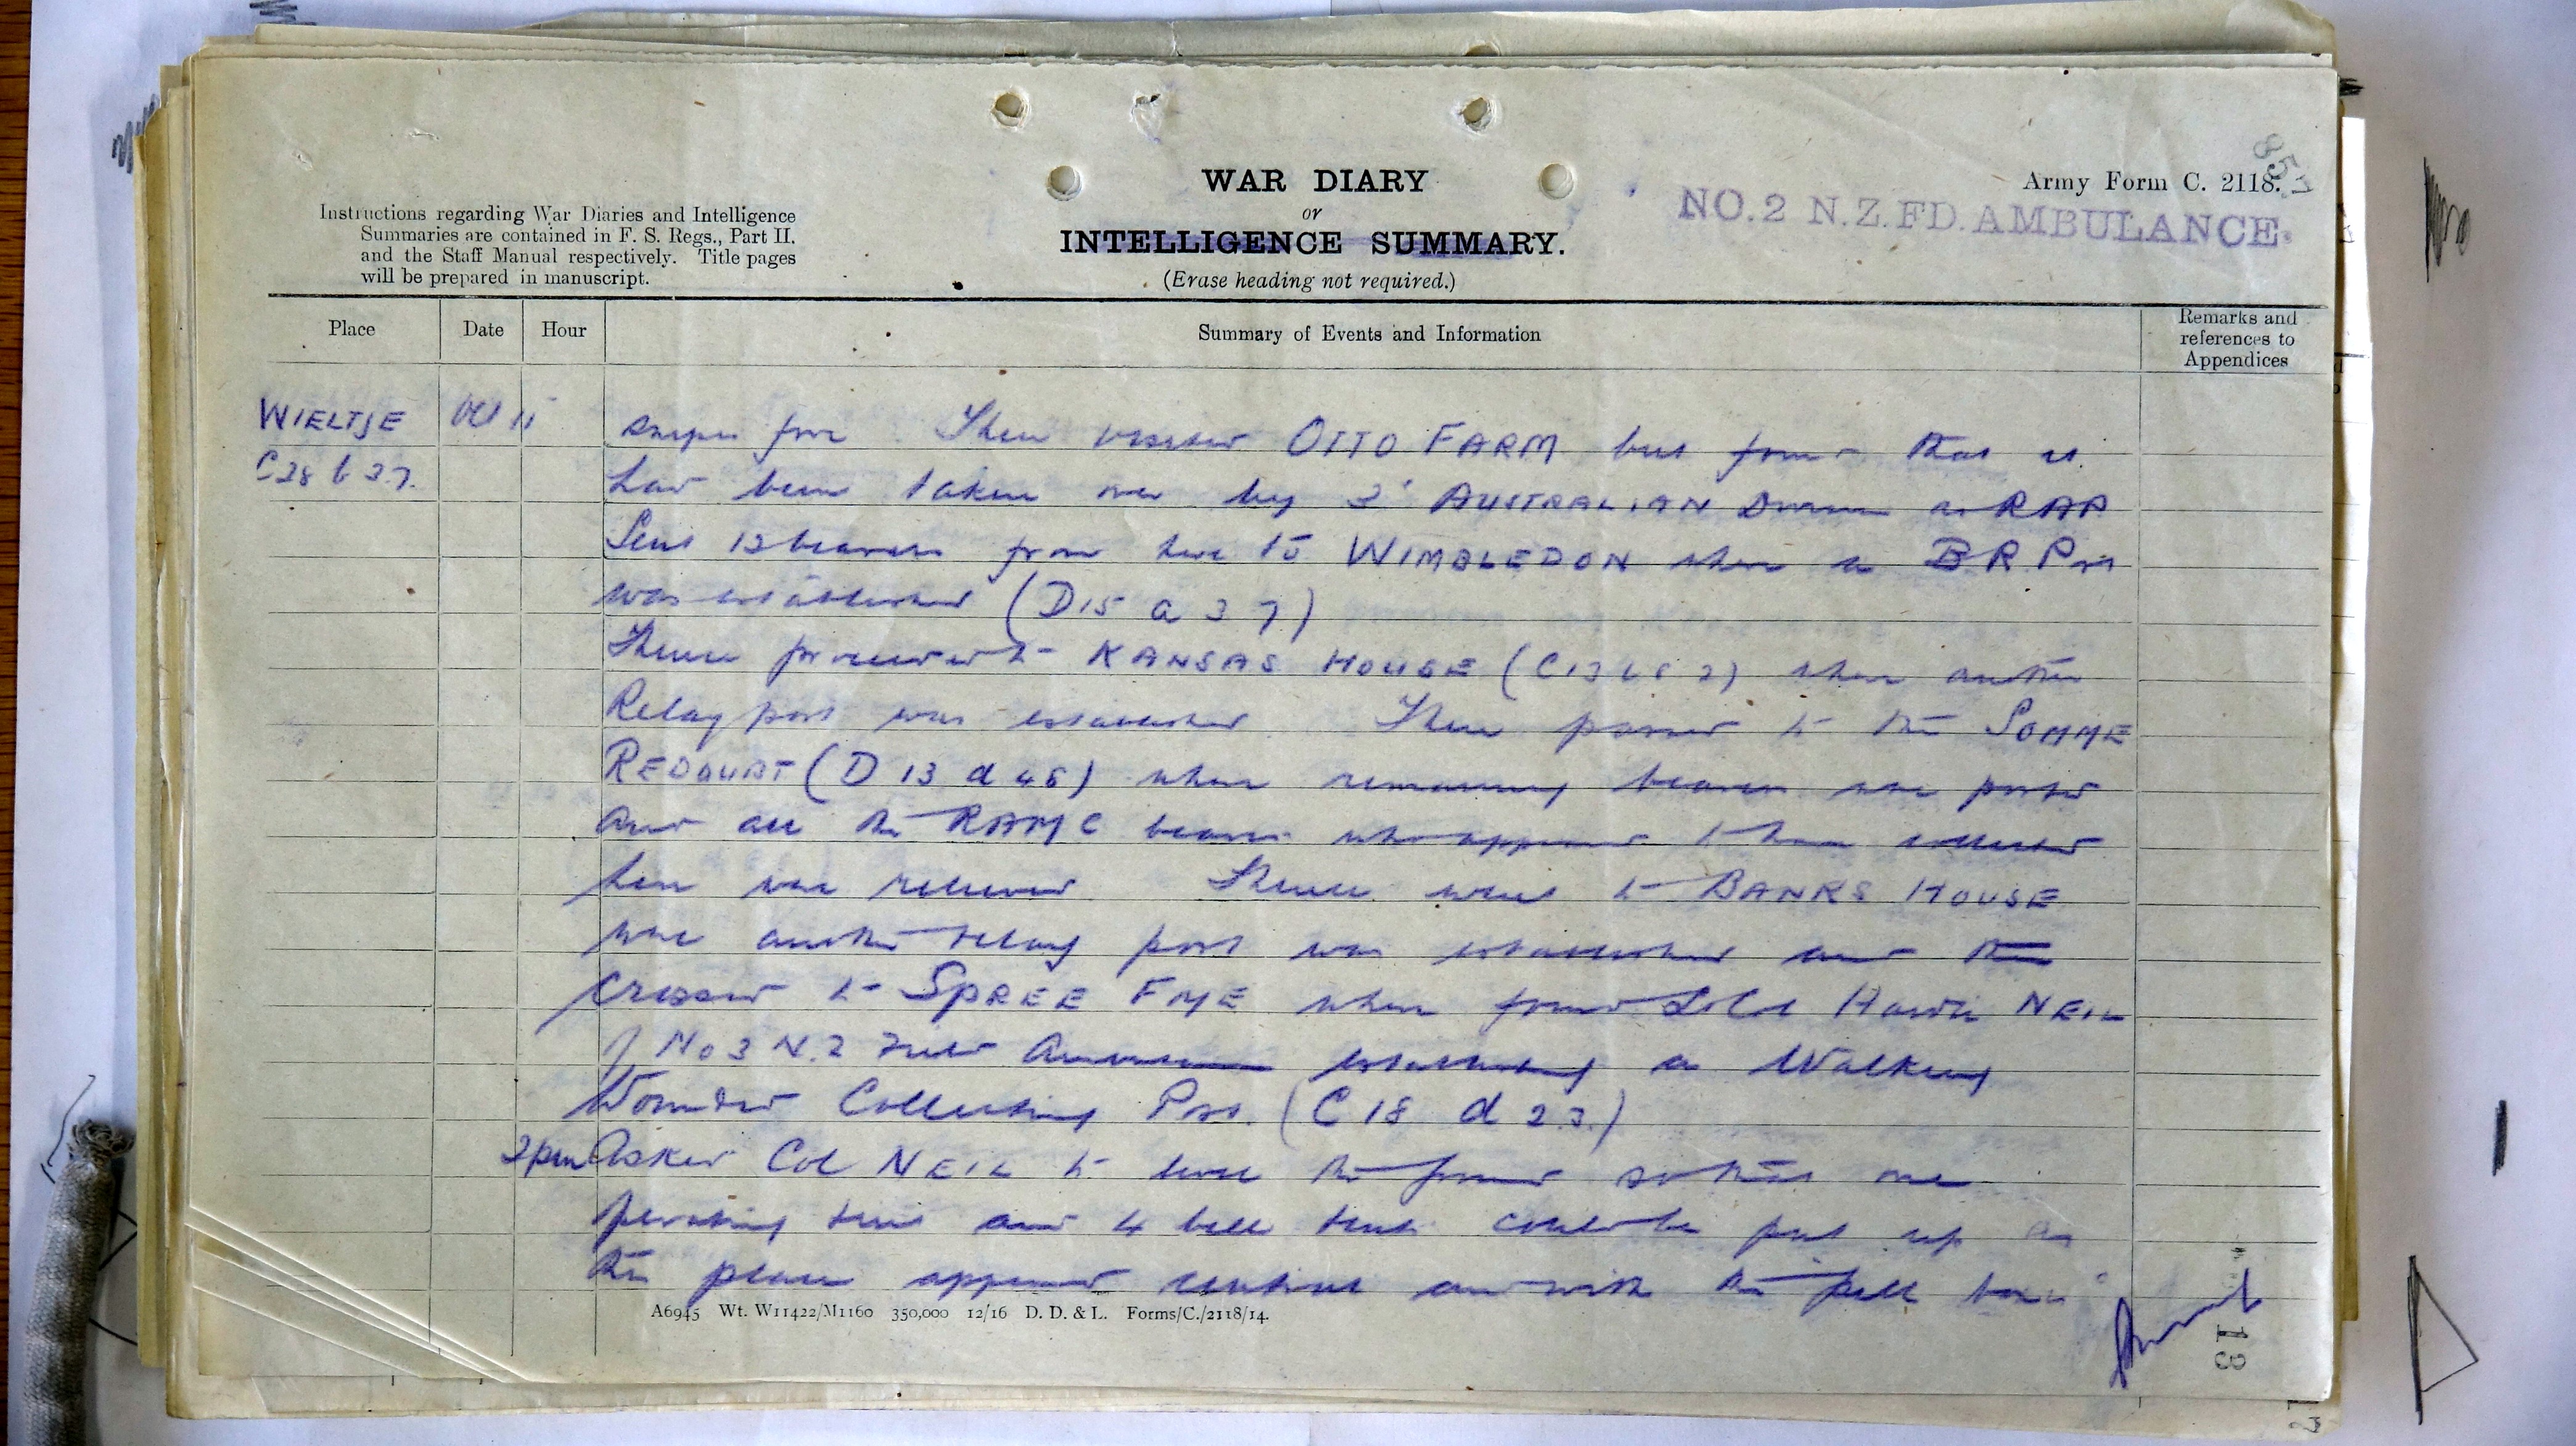 857
Army Form C. 2118.
NO. 2 N.Z. FD. AMBULANCE.
WAR DIARY
or
INTELLIGENCE SUMMARY.
(Erase heading not required.)
Instructions regarding War Diaries and Intelligence
Summaries are contained in F. S. Regs., Part II.
and the Staff Manual respectively. Title pages
will be prepared in manuscript.
Place Date Hour Summary of Events and Information Remarks and references to Appendices
WIELTJE Oct 11
C28 b 3.7.
fire Then visited OTTO FARM but found that it
had been taken over by 3' AUSTRALIAN Division as RAP
Sent 12 bearers from here to WIMBLEDON where a BR Post
was established (D15 a 3 7)
Thence proceeded to KANSAS HOUSE where another
Relay post was established Then passed to the SOMME
REDOUBT (D 13 d 4 6) where remaining bearers were posted
and all the RAMC bearers who appeared to have collected
here were relieved Thence went to BANKS HOUSE
were another relay post was established and
crossed to SPREE FME where found Lt Col Hardie NEIL
of No 3 N.Z Field Ambulance establishing a Walking
Wounded Collecting Post. (C 18 d 2.3.)
2pm Asked Col NEIL to level the ground so that one
operating tent and 4 bell tents could be put up as
the place appeared central and with the pill boxes
A6945 Wt. W11422/M1160 350,000 12/16 D. D. & L. Forms/C./2118/14.
13